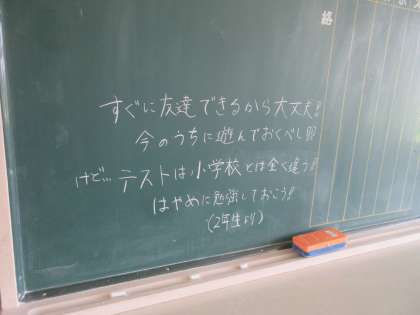 絡
すぐに友達できるから大丈夫!!
今のうちに遊んでおくべし!!
けど… テストは小学校とは全く違う!!
はやめに勉強しておこう!!
(2年生より)